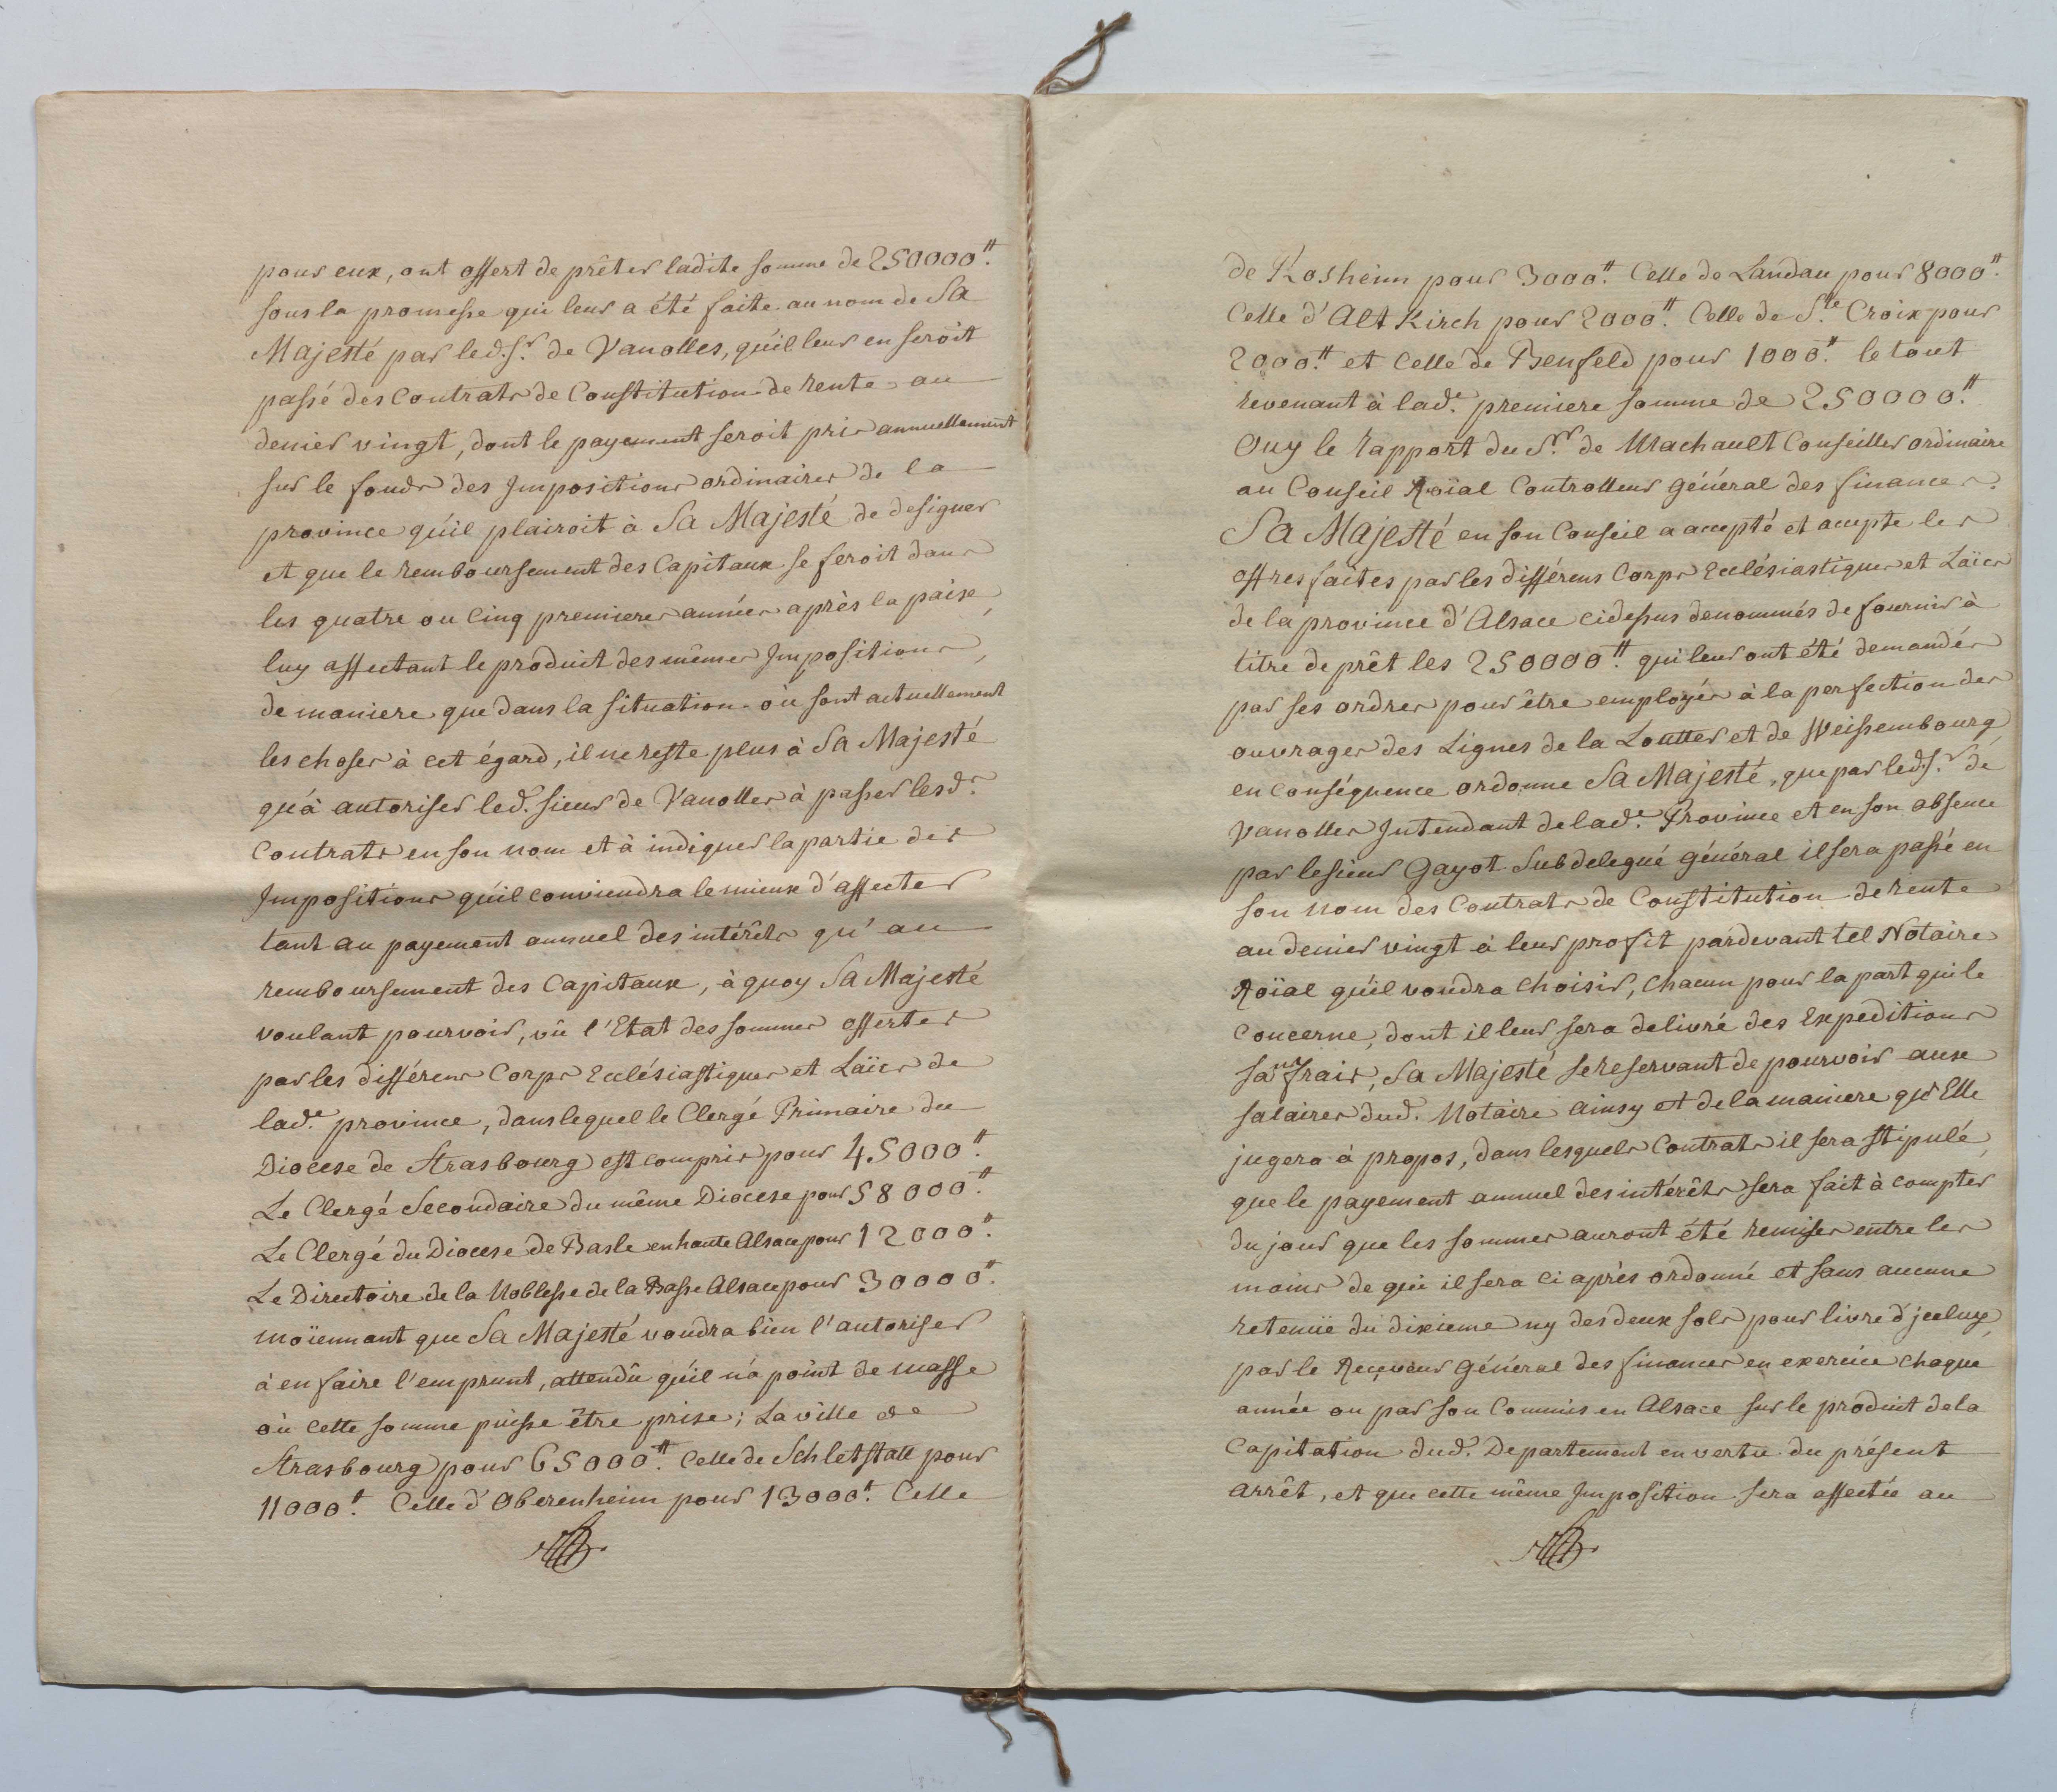 pour eux, ont offert de prêter ladite somme de 250000.₶
sous la promesse qui leur a été faite au nom de Sa
Majesté par led. Sr. de Vanolles, qu'il leur en seroit
passé des Contrats de Constitution de rente au
denier vingt, dont le payement seroit pris annuellement
sur le fonds des Impositions ordinaires de la
province qu'il plairoit à Sa Majesté de designer
et que le remboursement des Capitaux se feroit dans
les quatre ou Cinq premieres années après la paix,
luy affectant le produit des mêmes Impositions,
de maniere que dans la situation où sont actuellement
les choses à cet égard, il ne reste plus à Sa Majesté
qu'à autoriser led. sieur de Vanolles à passer lesd.
Contrats en son nom et à indiquer la partie des
Impositions qu'il conviendra le mieux d'affecter
tant au payement annuel des intérêts qu'au
remboursement des Capitaux, à quoy Sa Majesté
voulant pourvoir, vû l'Etat des sommes offertes
par les différens Corps Ecclésiastiques et Laïcs de
lade. province, dans lequel le Clergé Primaire du
Diocese de Strasbourg est compris pour 45000.₶
Le Clergé Secondaire du même Diocese pour 58000.₶
Le Clergé du Diocese de Basle en haute Alsace pour 12000.₶
Le Directoire de la Noblesse de la Basse Alsace pour 30000.₶
moïennant que Sa Majesté voudra bien l'autoriser
à en faire l'emprunt, attendû qu'il n'a point de masse
où cette somme puisse être prise; La ville de
Strasbourg pour 65000.₶ Celle de Schletstatt pour
11000.₶ Celle d'Oberenheim pour 13000.₶ Celle
de Rosheim pour 3000.₶ Celle de Landau pour 8000.₶
Celle d'Alt Kirch pour 2000.₶ Celle de Ste. Croix pour
2000.₶ et Celle de Benfeld pour 1000.₶ le tout
revenant à lade. premiere somme de 250000.₶
Ouy le rapport du Sr. de Machault Conseiller ordinaire
au Conseil Roïal Controlleur général des finances.
Sa Majesté en son Conseil a accepté et accepte les
offres faites par les différens Corps Ecclésiastiques et Laïcs
de la province d'Alsace cidessus denommés de fournir à
titre de prêt les 250000.₶ qui leur ont été demandés
par ses ordres pour être employés à la perfection des
ouvrages des Lignes de la Loutter et de Weissembourg,
en conséquence ordonne Sa Majesté, que par led. Sr. de
Vanolles Intendant de lade. Province et en son absence
par le sieur Gayot Subdelegué général il sera passé en
son nom des Contrats de Constitution de rente
au denier vingt à leur profit pardevant tel Notaire
Roïal qu'il voudra choisir, chacun pour la part qui le
concerne, dont il leur sera delivré des Expeditions
sans frais, Sa Majesté se reservant de pourvoir aux
salaires dud. Notaire ainsy et de la maniere qu'Elle
jugera à propos, dans lesquels Contrats il sera stipulé,
que le payement annuel des intérêts sera fait à compter
du jour que les sommes auront été remises entre les
mains de qui il sera ci après ordonné et sans aucune
retenüe du dixieme ny des deux sols pour livre d'jceluy,
par le Receveur général des finances en exercice chaque
année ou par son Commis en Alsace sur le produit de la
Capitation dud. Departement en vertu du présent
arrêt, et que cette même Imposition sera affectée au